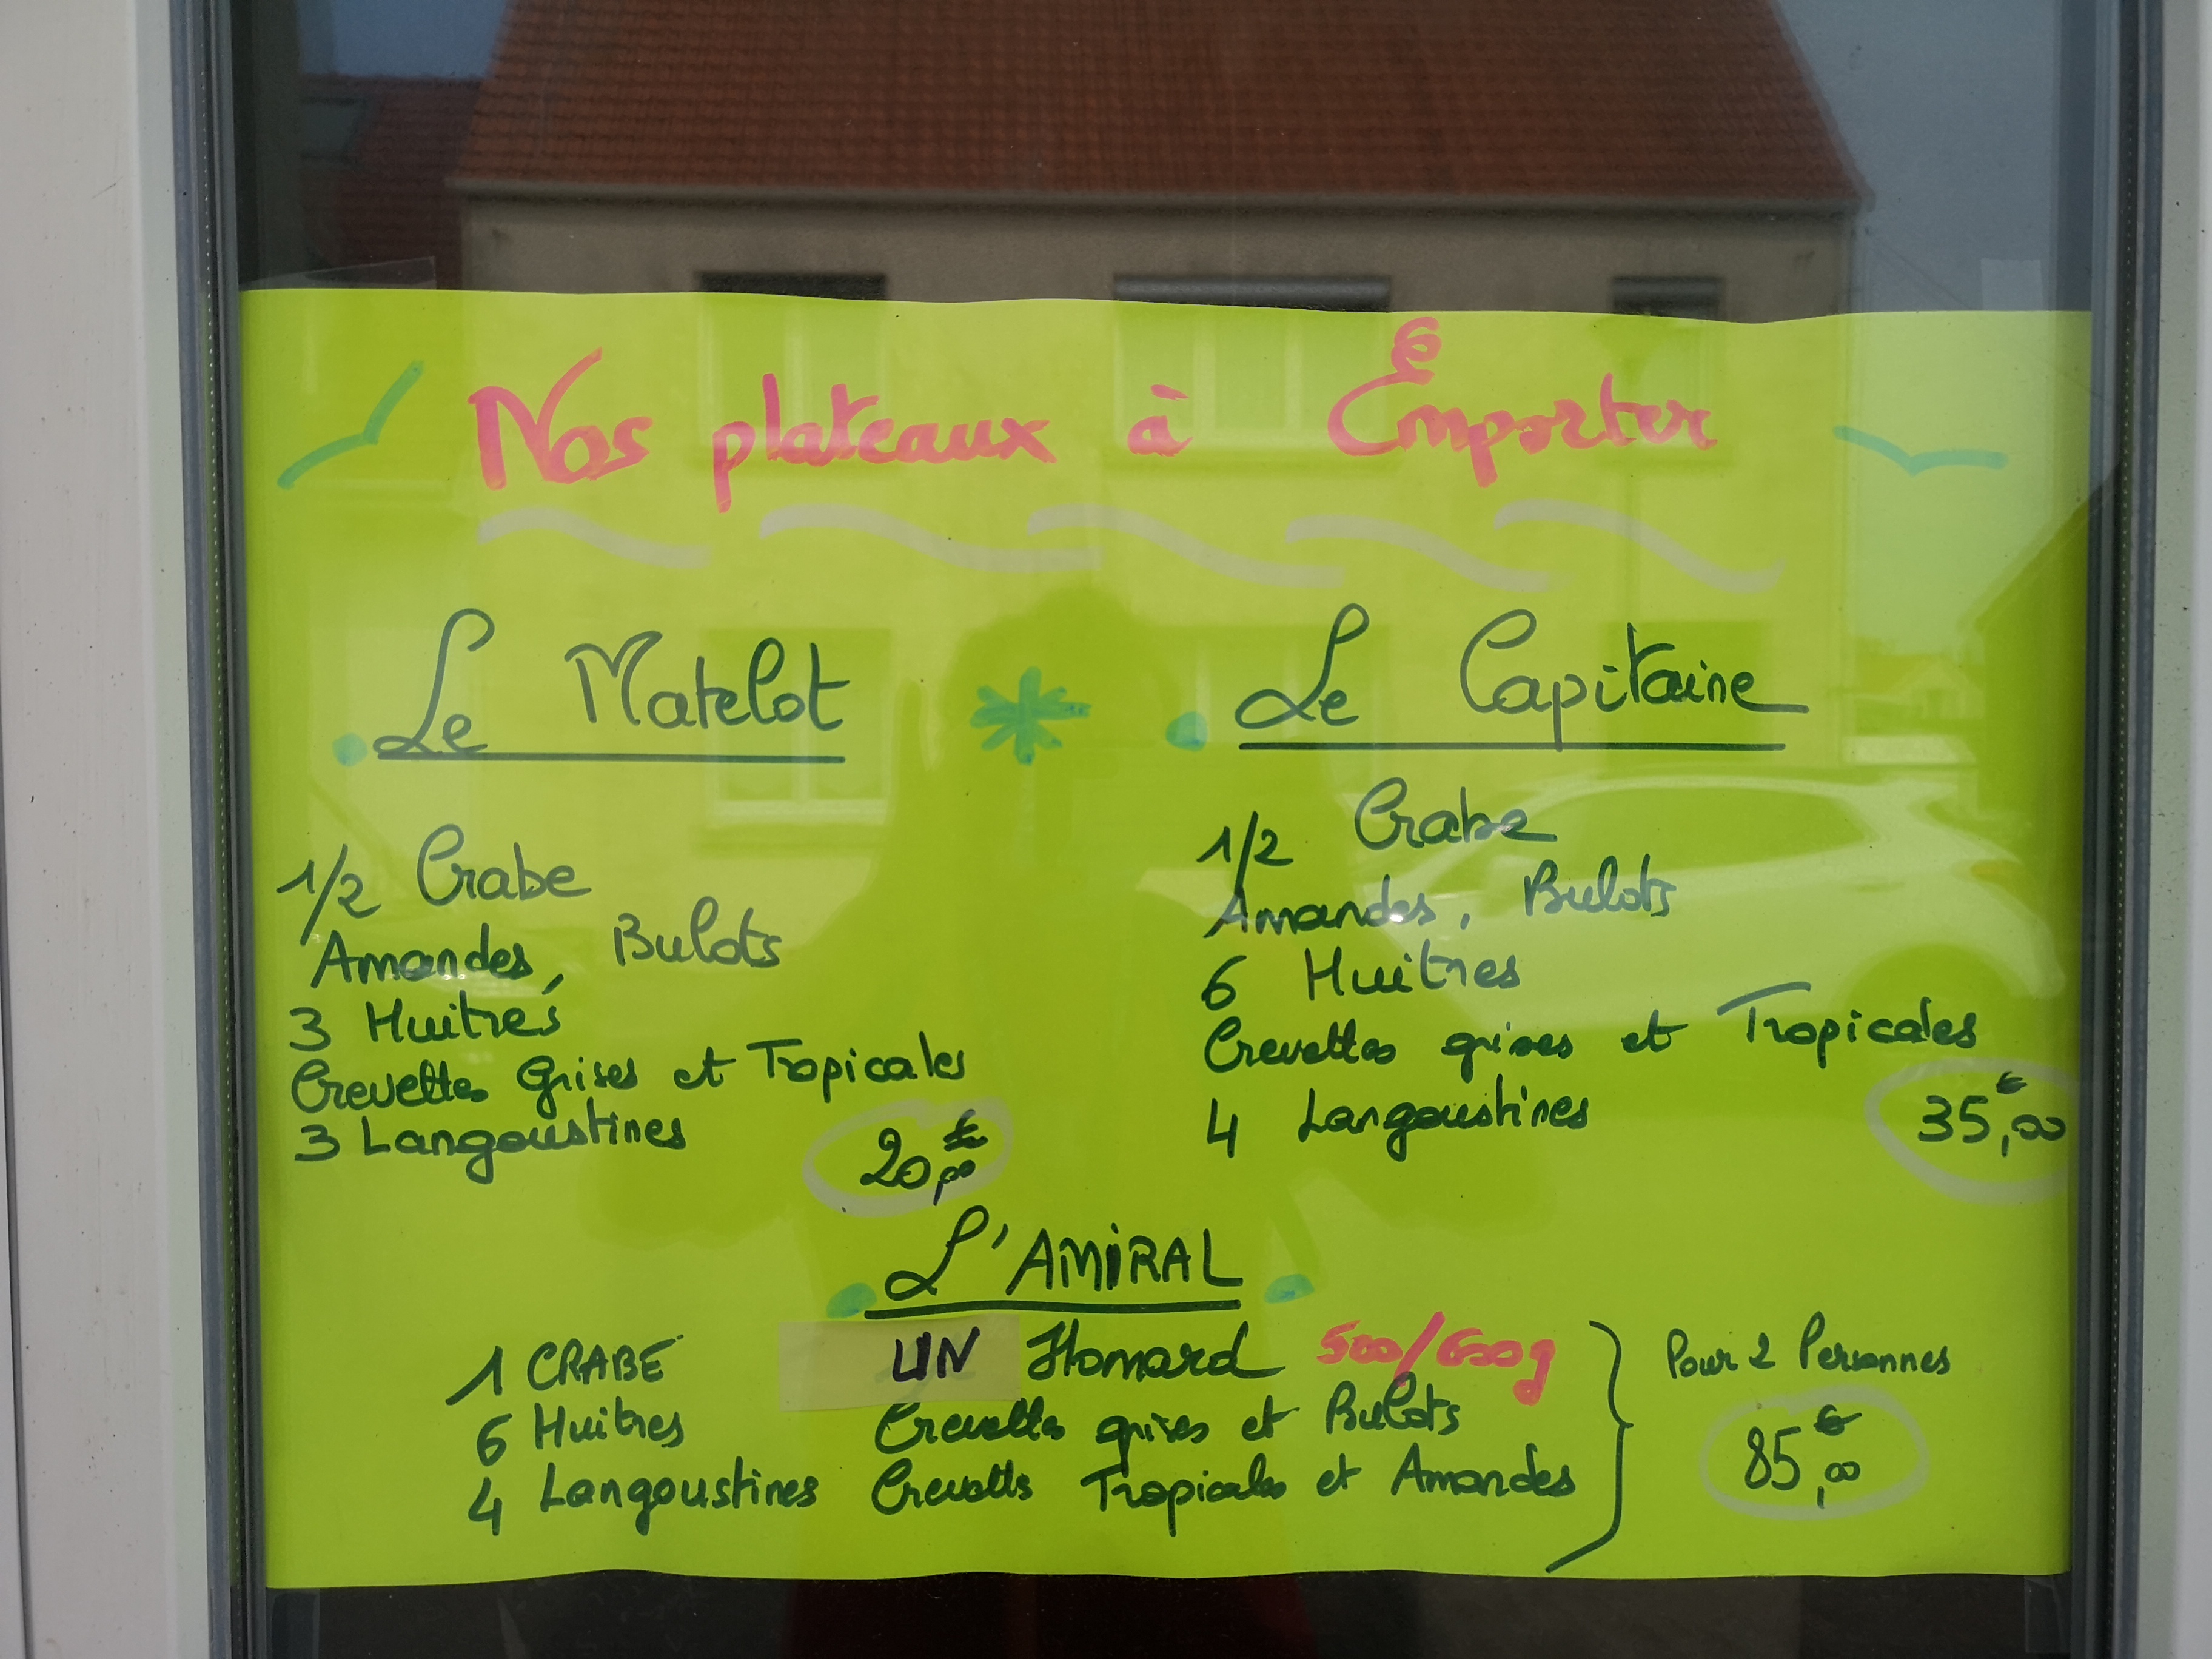 Nos plateaux à Emporter
Le Matelot
1/2 Crabe
Amandes, Bulots
3 Huitres
Crevettes Grises et Tropicales
3 Langoustines
20,00 €
Le Capitaine
1/2 Crabe
Amandes, Bulots
6 Huitres
Crevettes grises et Tropicales
4 Langoustines
35,00 €
L'AMIRAL
1 CRABE UN Homard 500/600g
6 Huitres Crevettes grises et Bulots
4 Langoustines Crevettes Tropicales et Amandes
Pour 2 Personnes
85,00 €